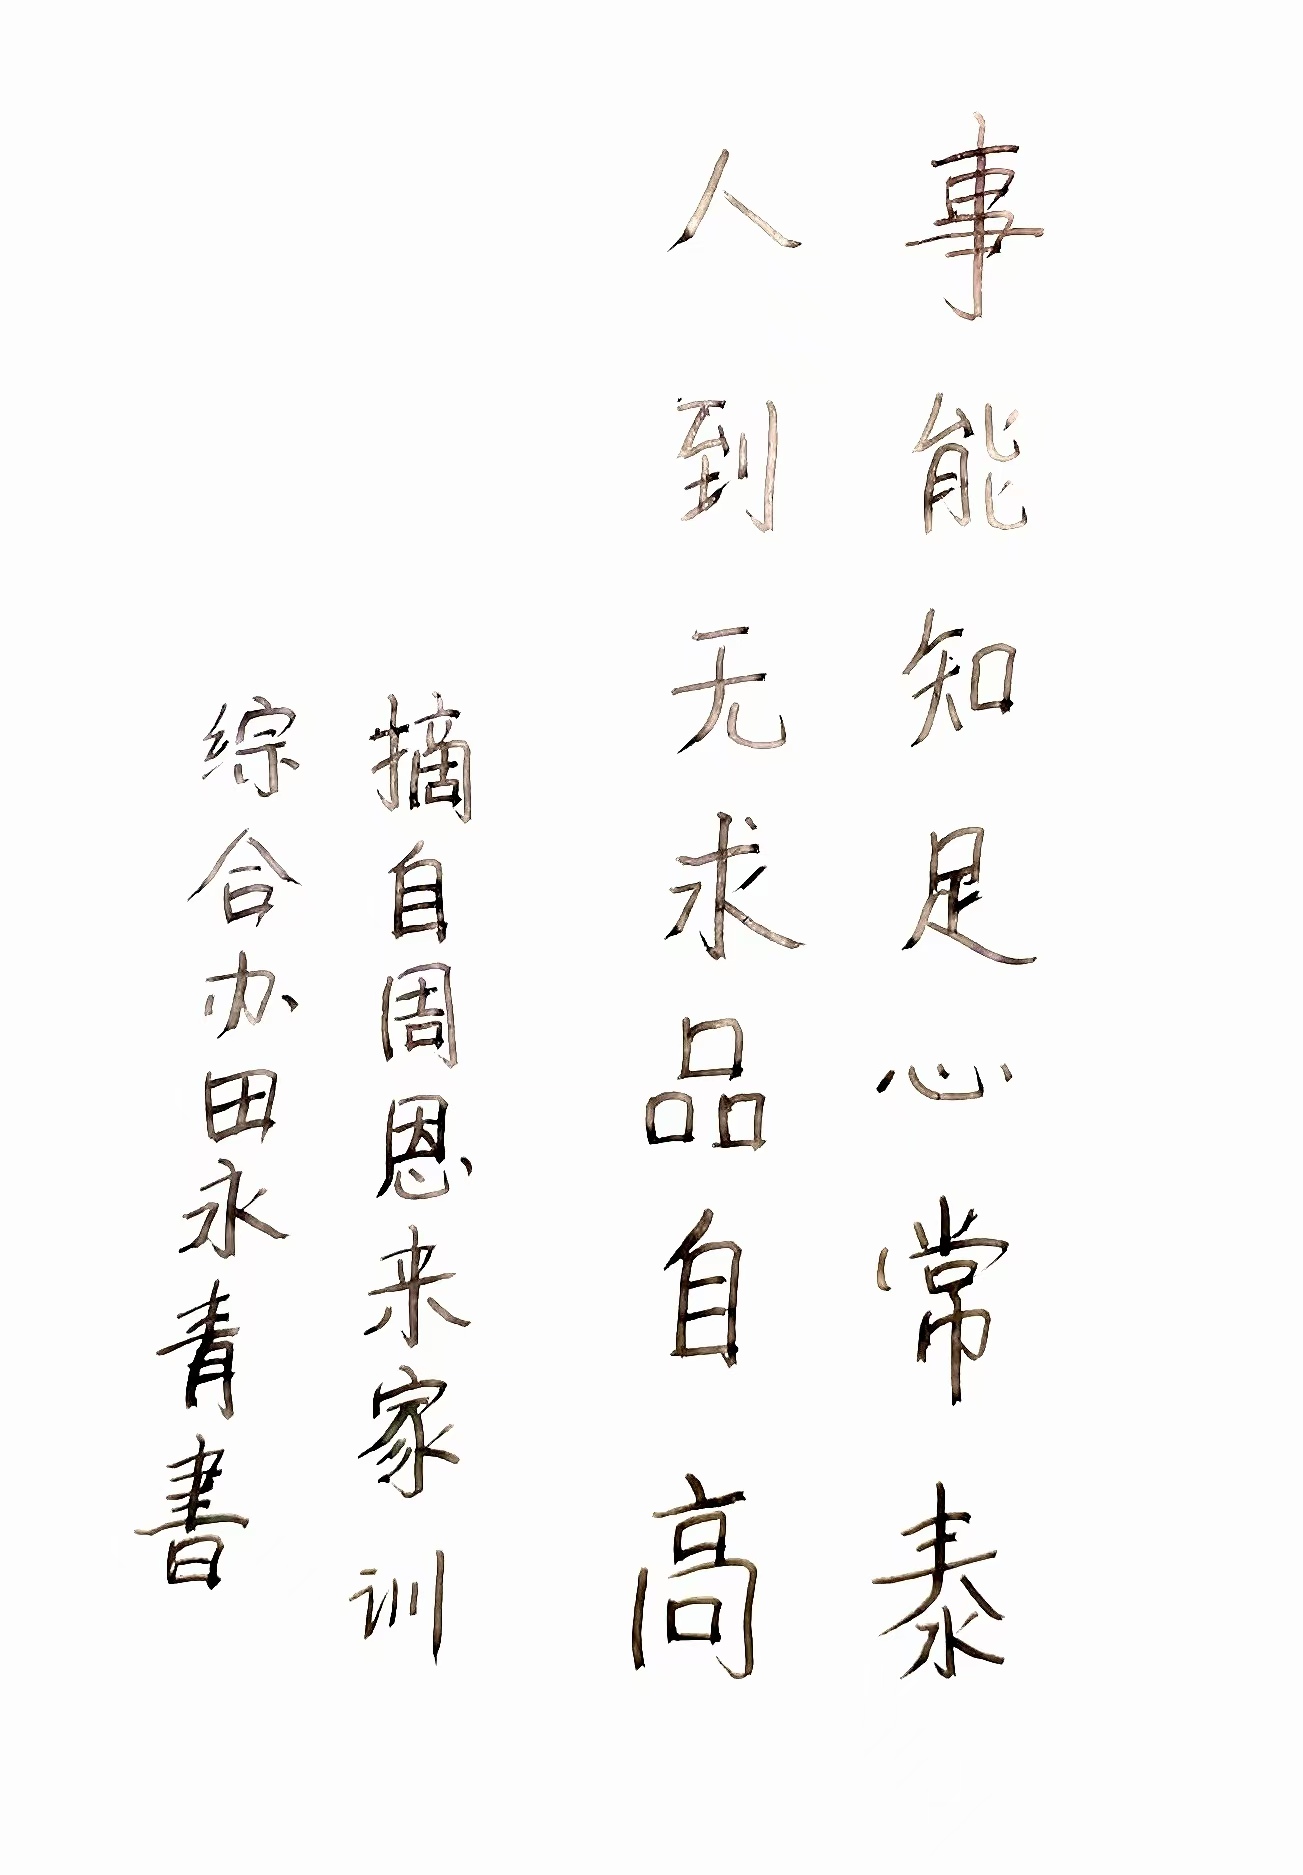 事能知足心常泰
人到无求品自高
摘自周恩来家训
综合办田永青書